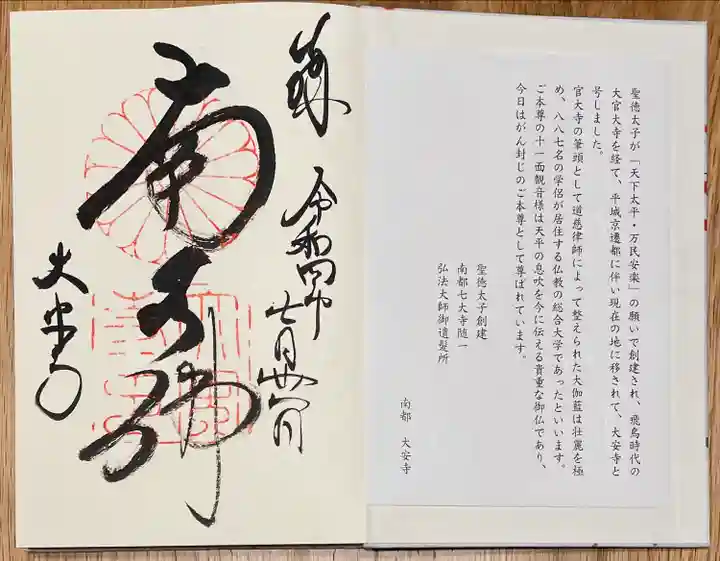 聖徳太子が「天下太平・万民安楽」の願いで創建され、飛鳥時代の
大官大寺を経て、平城京遷都に伴い現在の地に移されて、大安寺と
号しました。
官大寺の筆頭として道慈律師によって整えられた大伽藍は壮麗を極
め、八八七名の学侶が居住する仏教の総合大学であったといいます。
ご本尊の十一面観音様は天平の息吹を今に伝える貴重な御仏であり、
今日はがん封じのご本尊として尊ばれています。
聖徳太子創建
南都七大寺随一
弘法大師御遺髪所
南都 大安寺
令和四年 七月
南无佛
大安寺